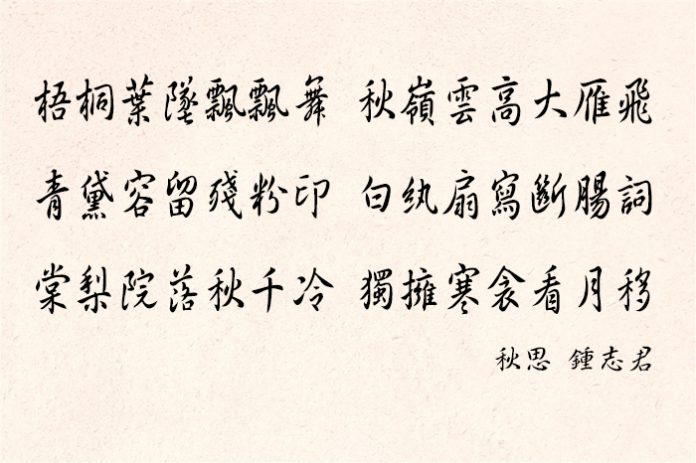 梧桐葉墜飄飄舞 秋嶺雲高大雁飛
青黛容留殘粉印 白紈扇寫斷腸詞
棠梨院落秋千冷 獨擁寒衾看月移
秋思 鍾志君